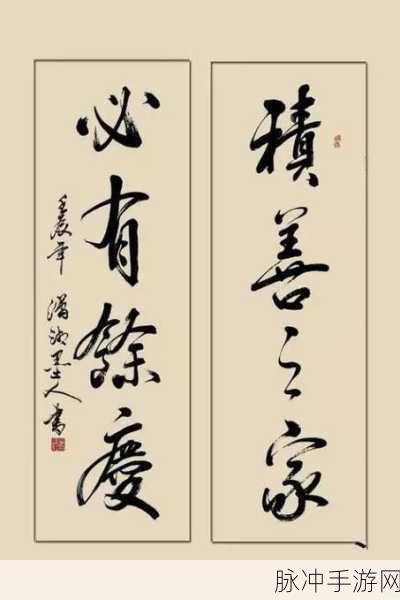 積善之家
必有餘慶
壬辰年 瀟湘墨人書
脉冲手游网